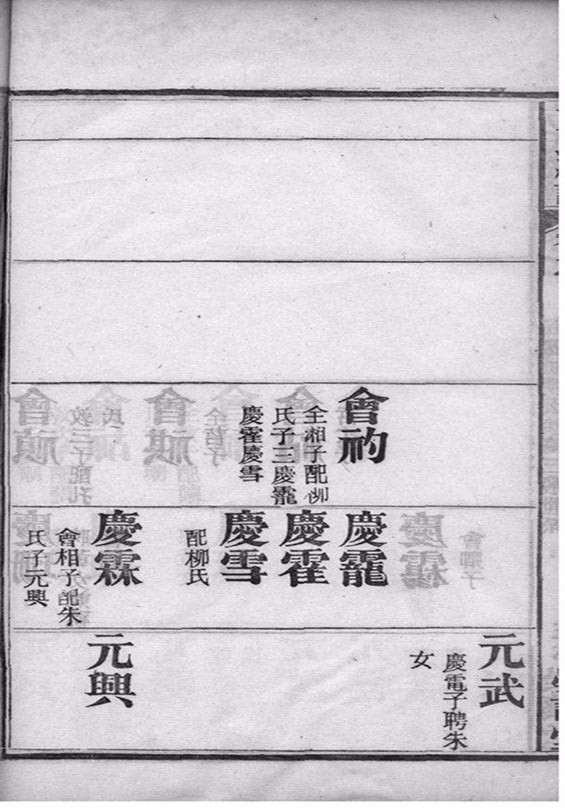 會礿
全湘子配柳
氏子三慶靇
慶霍慶雪
慶靇
慶霍
慶雪
配柳氏
慶霖
會相子配朱
氏子元興
元武
慶電子聘朱
女
元興